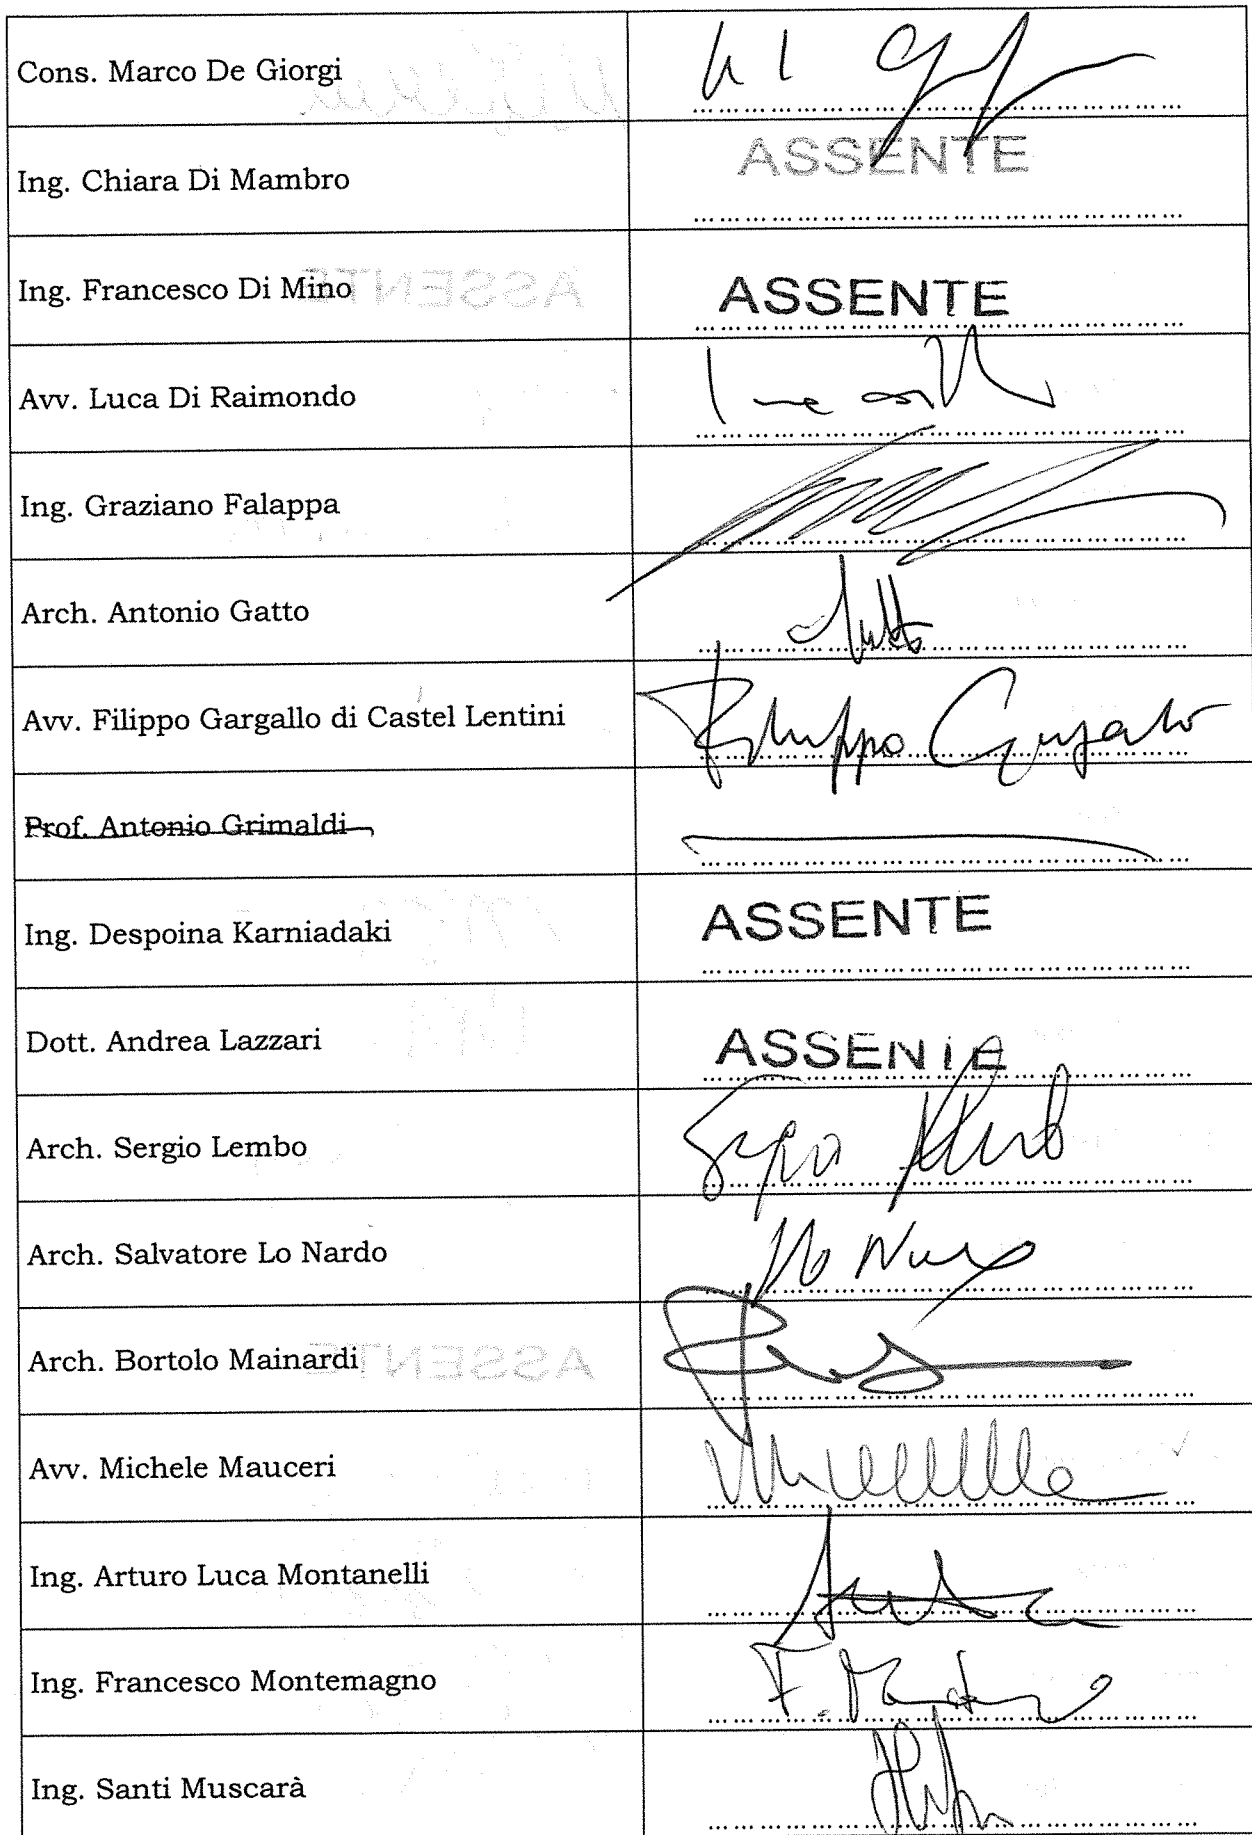 Cons. Marco De Giorgi
Ing. Chiara Di Mambro ASSENTE
Ing. Francesco Di Mino ASSENTE
Avv. Luca Di Raimondo
Ing. Graziano Falappa
Arch. Antonio Gatto
Avv. Filippo Gargallo di Castel Lentini Filippo Gargallo
Prof. Antonio Grimaldi
Ing. Despoina Karniadaki ASSENTE
Dott. Andrea Lazzari ASSENTE
Arch. Sergio Lembo
Arch. Salvatore Lo Nardo
Arch. Bortolo Mainardi
Avv. Michele Mauceri
Ing. Arturo Luca Montanelli
Ing. Francesco Montemagno
Ing. Santi Muscarà